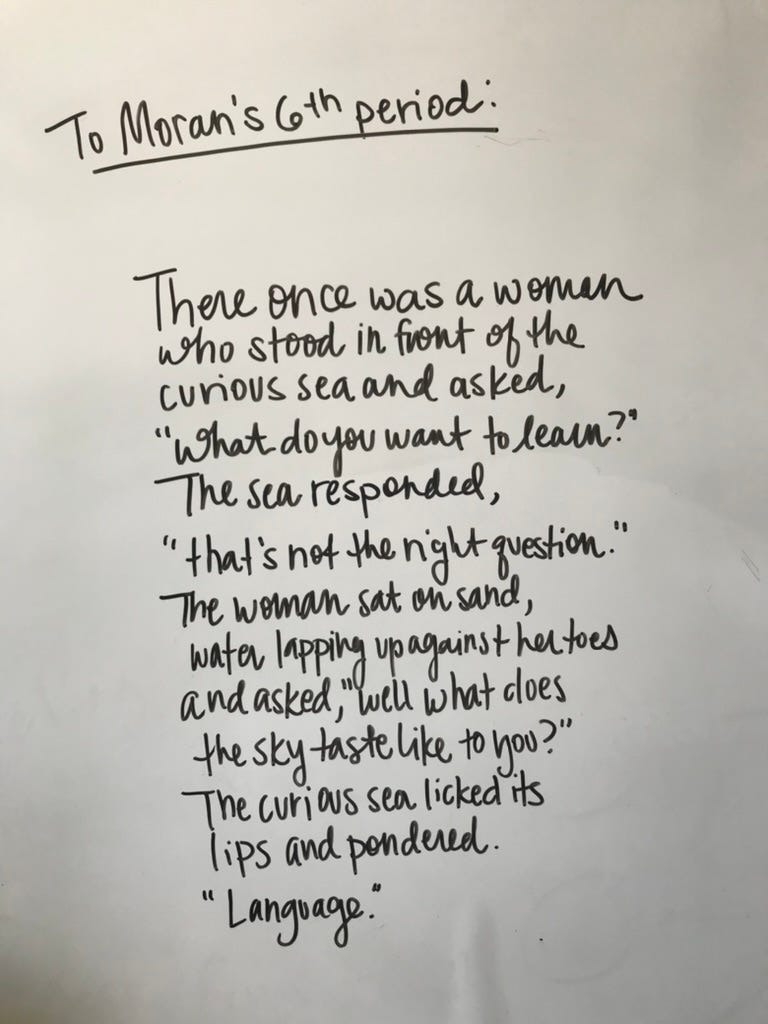 To Moran's 6th period:
There once was a woman
who stood in front of the
curious sea and asked,
"What do you want to learn?"
The sea responded,
"that's not the right question."
The woman sat on sand,
water lapping up against her toes
and asked, "well what does
the sky taste like to you?"
The curious sea licked its
lips and pondered.
"Language."